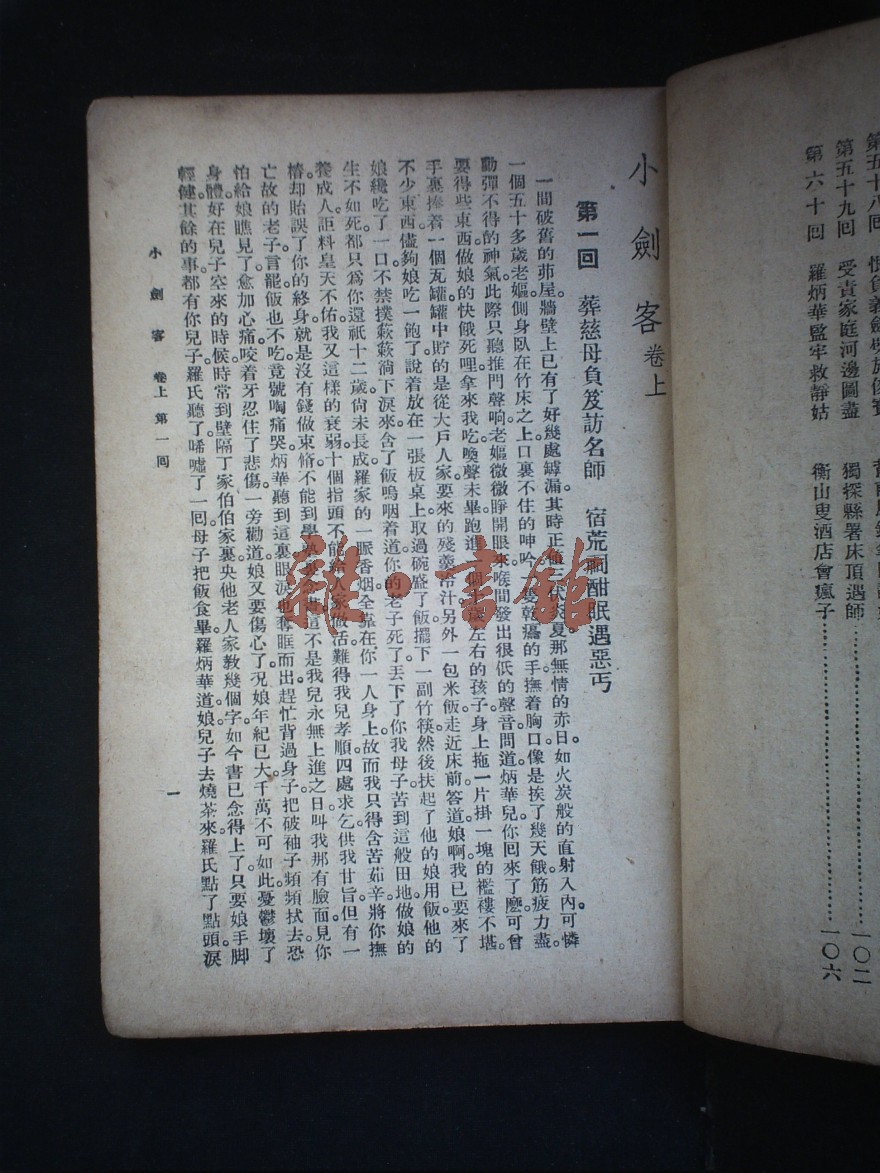 第五十九回　受責家庭河邊圖盡　獨探縣署床頂遇師……一〇二
第六十回　羅炳華監牢救靜姑　衡山叟酒店會瘋子……一〇六
小劍客 卷上
第一回　葬慈母負笈訪名師　宿荒祠酣眠遇惡丐
一間破舊的茆屋。牆壁上已有了好幾處罅漏。其時正値伏炎夏。那無情的赤日。如火炭般的直射入內。可憐
一個五十多歲老嫗。側身臥在竹床之上。口裏不住的呻吟。隻乾癟的手。撫着胸口。像是挨了幾天餓。筋疲力盡。
動彈不得的神氣。此際只聽推門聲响。老嫗微微睜開眼來。喉間發出很低的聲音。問道。炳華兒。你回來了麽。可曾
要得些東西。做娘的快餓死哩。拿來我吃。喚聲未畢。跑進個十歲左右的孩子。身上拖一片。掛一塊的襤褸不堪。
手裏捧着一個瓦罐。罐中貯的是從大戶人家要來的殘羹汁。另外一包米飯。走近床前。答道。娘啊。我已要來了
不少東西。儘夠娘吃一飽了。說着放在一張板桌上。取過碗盛了飯。擺下一副竹筷。然後扶起了他的娘用飯。他的
娘纔吃了一口。不禁撲簌簌淌下淚來。含了飯嗚咽着道。你的老子死了。丟下了你我母子。苦到這般田地。做娘的
生不如死。都只爲你還祇十二歲。尚未長成。羅家的一脈香烟。全靠在你一人身上。故而我只得含苦茹辛。將你撫
養成人。詎料皇天不佑。我又這樣的衰弱。十個指頭。不能給人家做活。難得我兒孝順。四處求乞。供我甘旨。但有一
樁。却貽誤了你的終身。就是沒有錢做束脩。不能到學念書。這不是我兒永無上進之日。叫我那有臉面見你
亡故的老子。言罷。飯也不吃。竟號啕痛哭。炳華聽到這裏。眼淚也奪眶而出。趕忙背過身子。把破袖子頻頻拭去。恐
怕給娘瞧見了。愈加心痛。咬着牙忍住了悲傷。一旁勸道。娘又要傷心了。况娘年紀已大。千萬不可如此。憂鬱壞了
身體。好在兒子空來的時候。時常到壁隔丁家伯伯家裏。央他老人家敎幾個字。如今書已念得上了。只要娘手脚
輕健。其餘的事。都有你兒子。羅氏聽了。唏噓了一回。母子把飯食畢。羅炳華道。娘。兒子去燒茶來。羅氏點了點頭。淚
小劍客　卷上　第一回
一
雜·書館